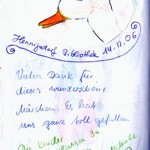 Hennigsdorf Bibliothek 14.11.06
Vielen Dank für
dieses wundervolle
Märchen. Es hat
uns ganz toll gefallen
Die Kinder